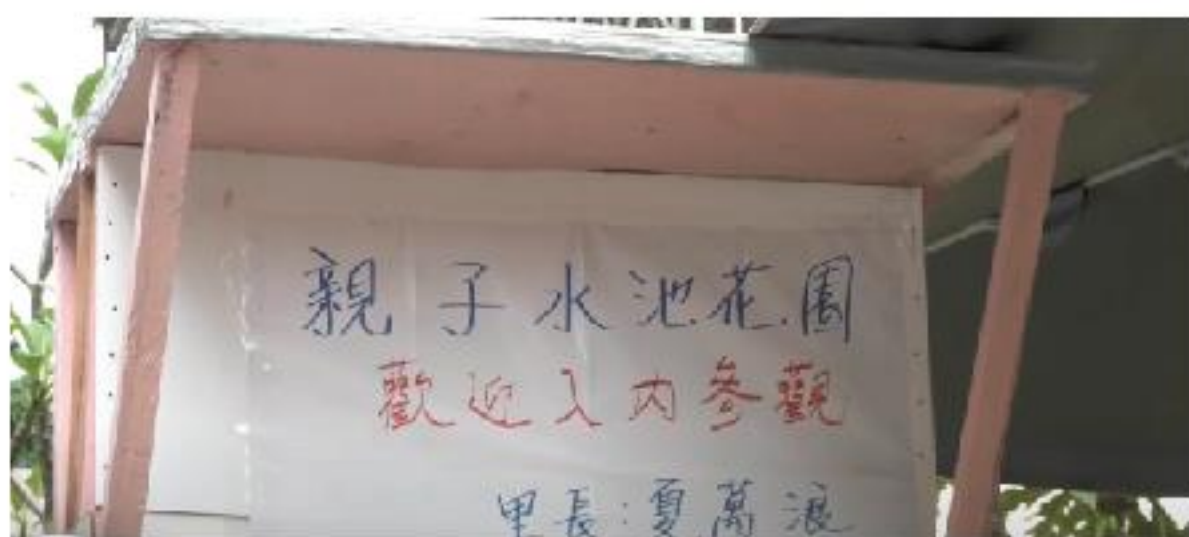 親子水池花園
歡迎入內參觀
里長:夏萬浪